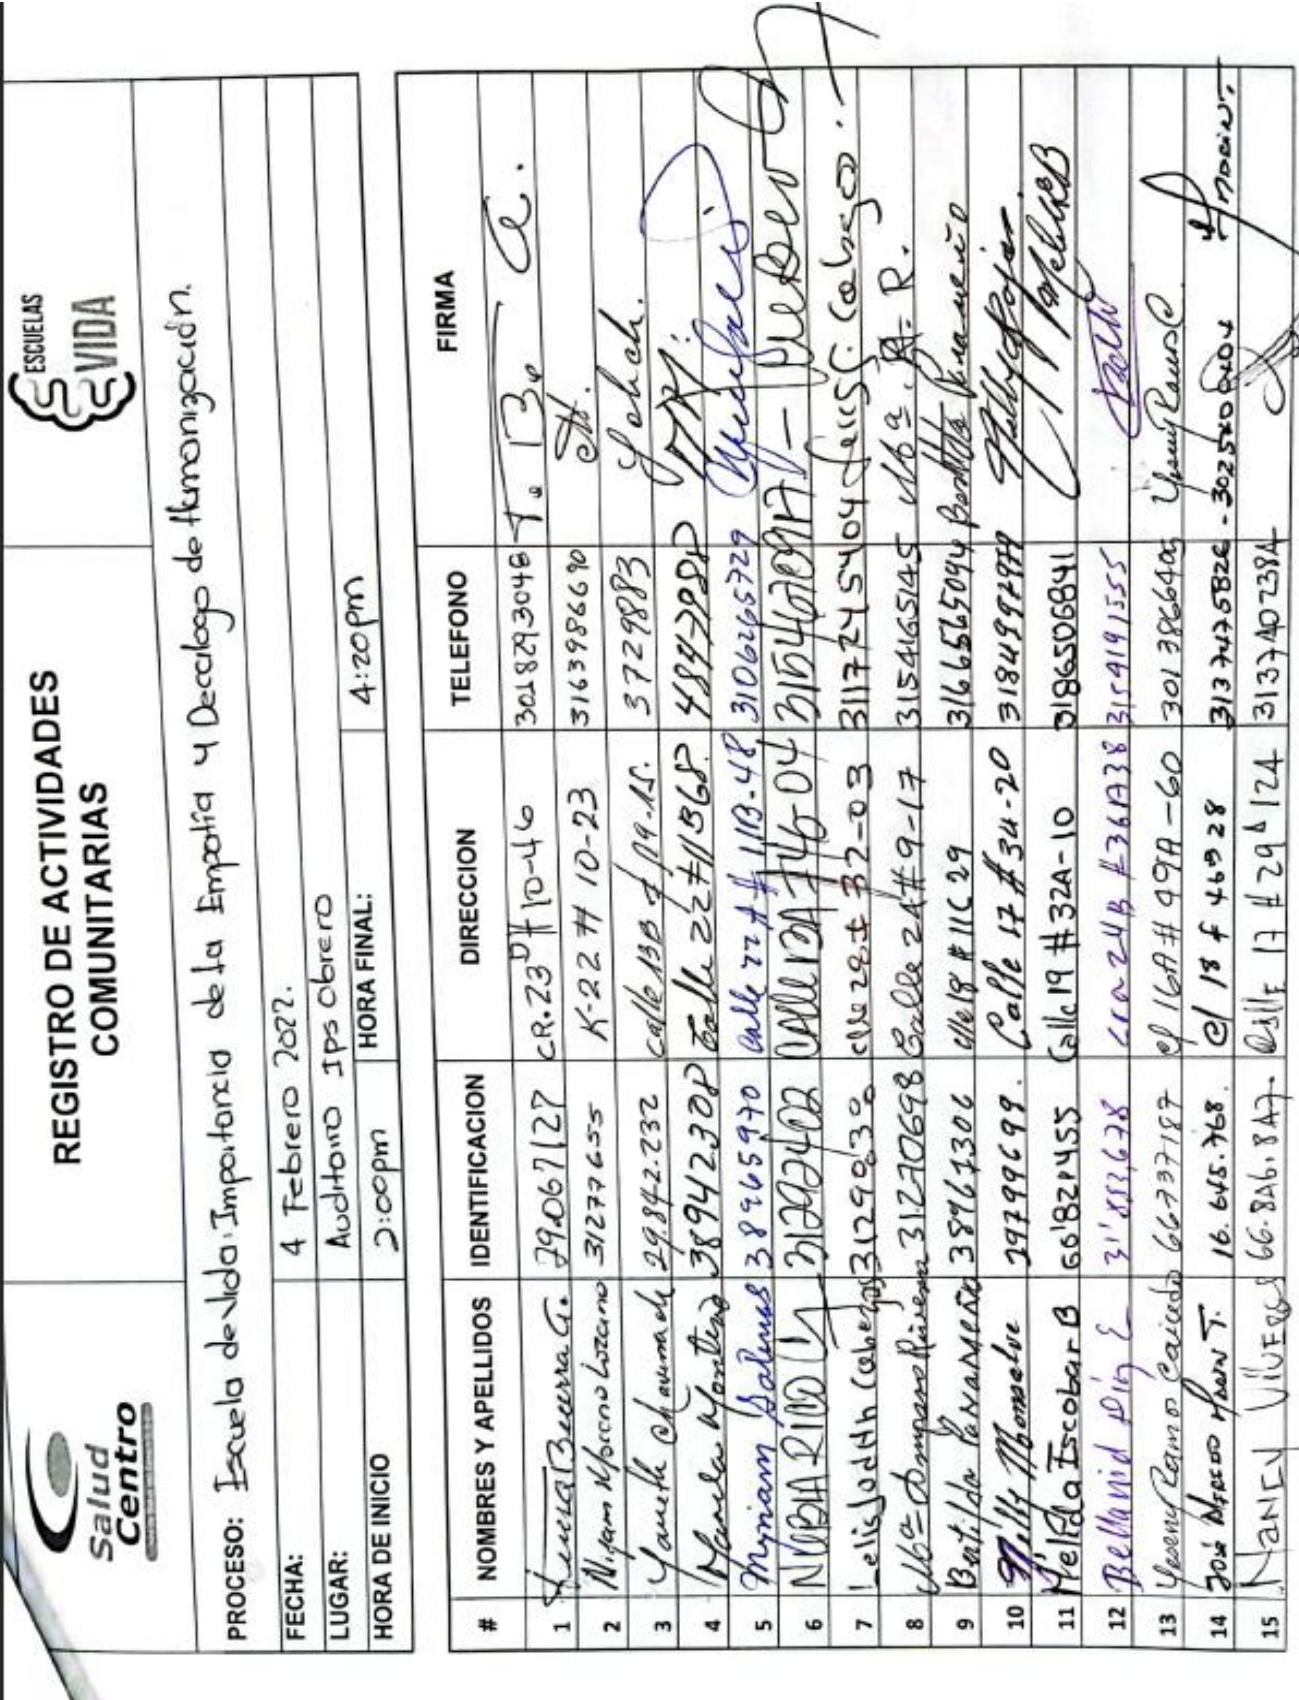 Salud
Centro
REGISTRO DE ACTIVIDADES
COMUNITARIAS
ESCUELAS
VIDA
PROCESO: Escuela de Vida: Importancia de la Empatia y Decalogo de Humanización.
FECHA: 4 Febrero 2022.
LUGAR: Auditorio Ips Obrero
HORA DE INICIO 2:00pm HORA FINAL: 4:20pm
# NOMBRES Y APELLIDOS IDENTIFICACION DIRECCION TELEFONO FIRMA
1 Becerra G. 29067127 CR.23D # 10-46 3018293048 T. B. G.
2 Moreno Lozano 31277655 K-22 # 10-23 3163986690
3 Yaneth 29.842.232 calle 13B # 19-15. 3729883
4 Montino 38942308 Calle 22 # 11B68. 4847988
5 Myriam Salinas 38965970 Calle 22A # 11B-48 3106265729
6 NUBIA RICO 31292402 CALLE 13A # 46-04
7 Lelis Judith Cabezas 31290.030 clle 28 # 32-03 3117245404
8 Mª Amparo 31270698 Calle 2A # 9-17 3154665145 Mª A. R.
9 Bertilda Parameño 38961306 # 11C 29 3166565094 Bertilda Parameño
10 Nelly Monsalve 29799699. Calle 17 # 34-20 3184992979
11 Melida Escobar B 66'821455 Calle 19 # 32A-10 3186506841
12 Bellanid 31'883,678 Cra 24B # 36A38 3159191555
13 Yeseny Ramos Caicedo 66737187 cl 16A # 49A-60 3013866405 Yeseny Ramos C.
14 José Alfredo T. 16.645.768. cl 18 # 46B28 3137425826
15 NANCY 66.846.847. Calle 17 # 29A 124 3137402384